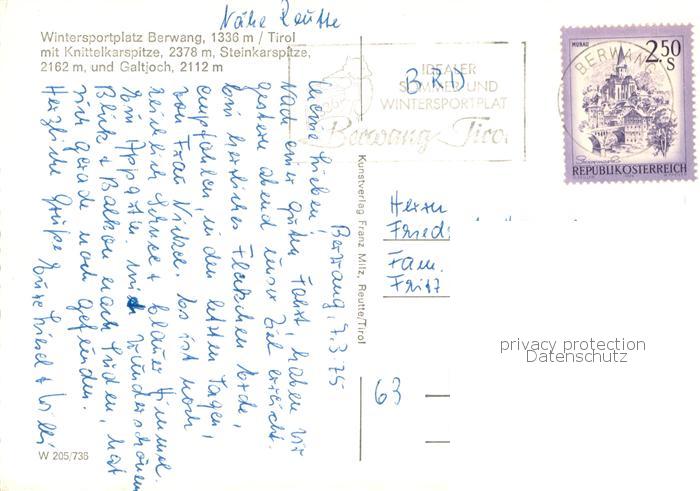 Nähe Reutte
Wintersportplatz Berwang, 1336 m / Tirol
mit Knittelkarspitze, 2378 m, Steinkarspitze,
2162 m, und Galtjoch, 2112 m
Berwang, 7.3.75
Meine Lieben,
Nach einer guten Fahrt, haben wir
gestern abend unser Ziel erreicht.
Ein herrliches Fleckchen Erde,
empfohlen, in den letzten Tagen,
von Frau Nickel. Es ist noch
reichlich Schnee + blauer Himmel.
Ein App. mit wunderschönem
Blick + Balkon nach Süden, hat
sich gerade noch gefunden.
Herzliche Grüße Eure + Willi
W 205/736
Kunstverlag Franz Milz, Reutte/Tirol
BRD
IDEALER
SOMMER UND
WINTERSPORTPLATZ
Berwang Tirol
BERWANG
MURAU
2.50 S
REPUBLIK ÖSTERREICH
Herrn
Fried
Fam.
Fritz
63
privacy protection
Datenschutz